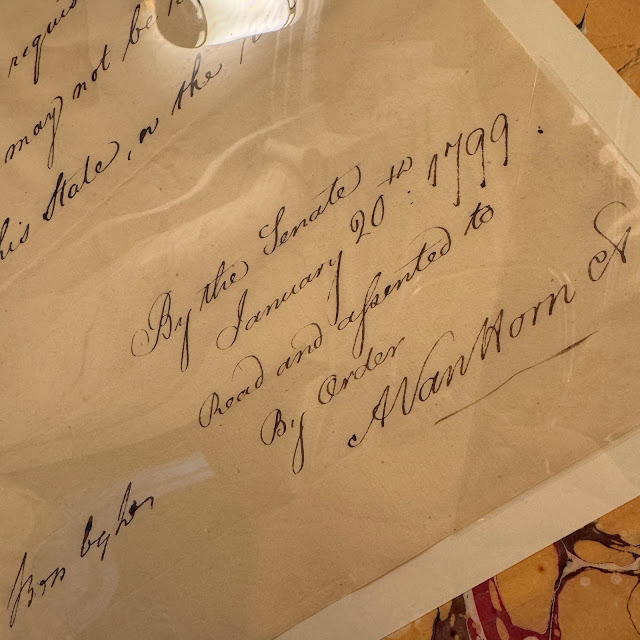 requis
may not be
his State, or the
By the Senate
January 20th: 1799.
Read and assented to
By Order
AVanHorn